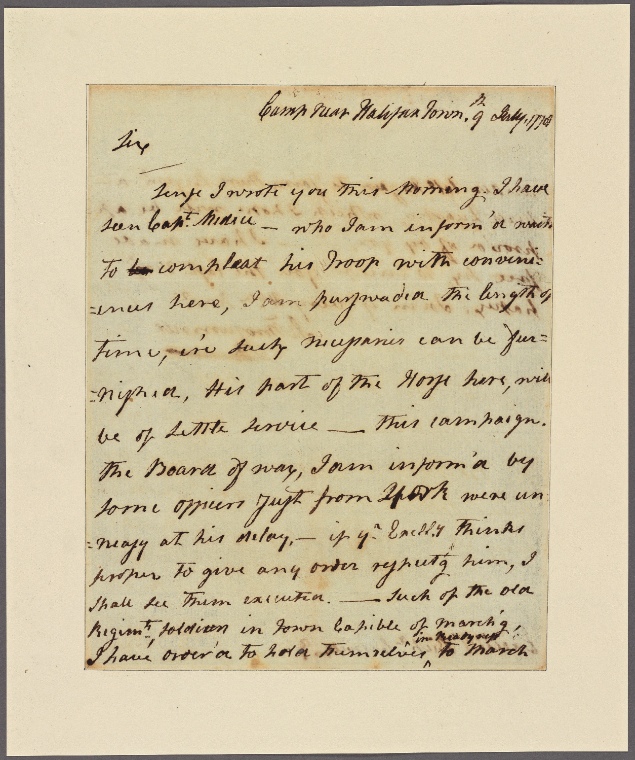 Camp near Halifax Town. 9th July. 1778
Sir
Sense I wrote you this Morning I have
seen Capt. Medice — who I am inform'd waits
To compleat his Troop with conveni=
=ences here, I am perswaded the length of
time, e're such necessaries can be fur=
=nished, His part of the Horse here, will
be of Little Service — this campaign.
the Board of war, I am inform'd by
some officers Just from York were un=
=neasy at his delay, — if yr. Excelly thinks
proper to give any order respectg him, I
shall see them executed. — Such of the old
Regimts, soldiers in Town Capible of marchg,
I have order'd to hold themselves in Readyness to March